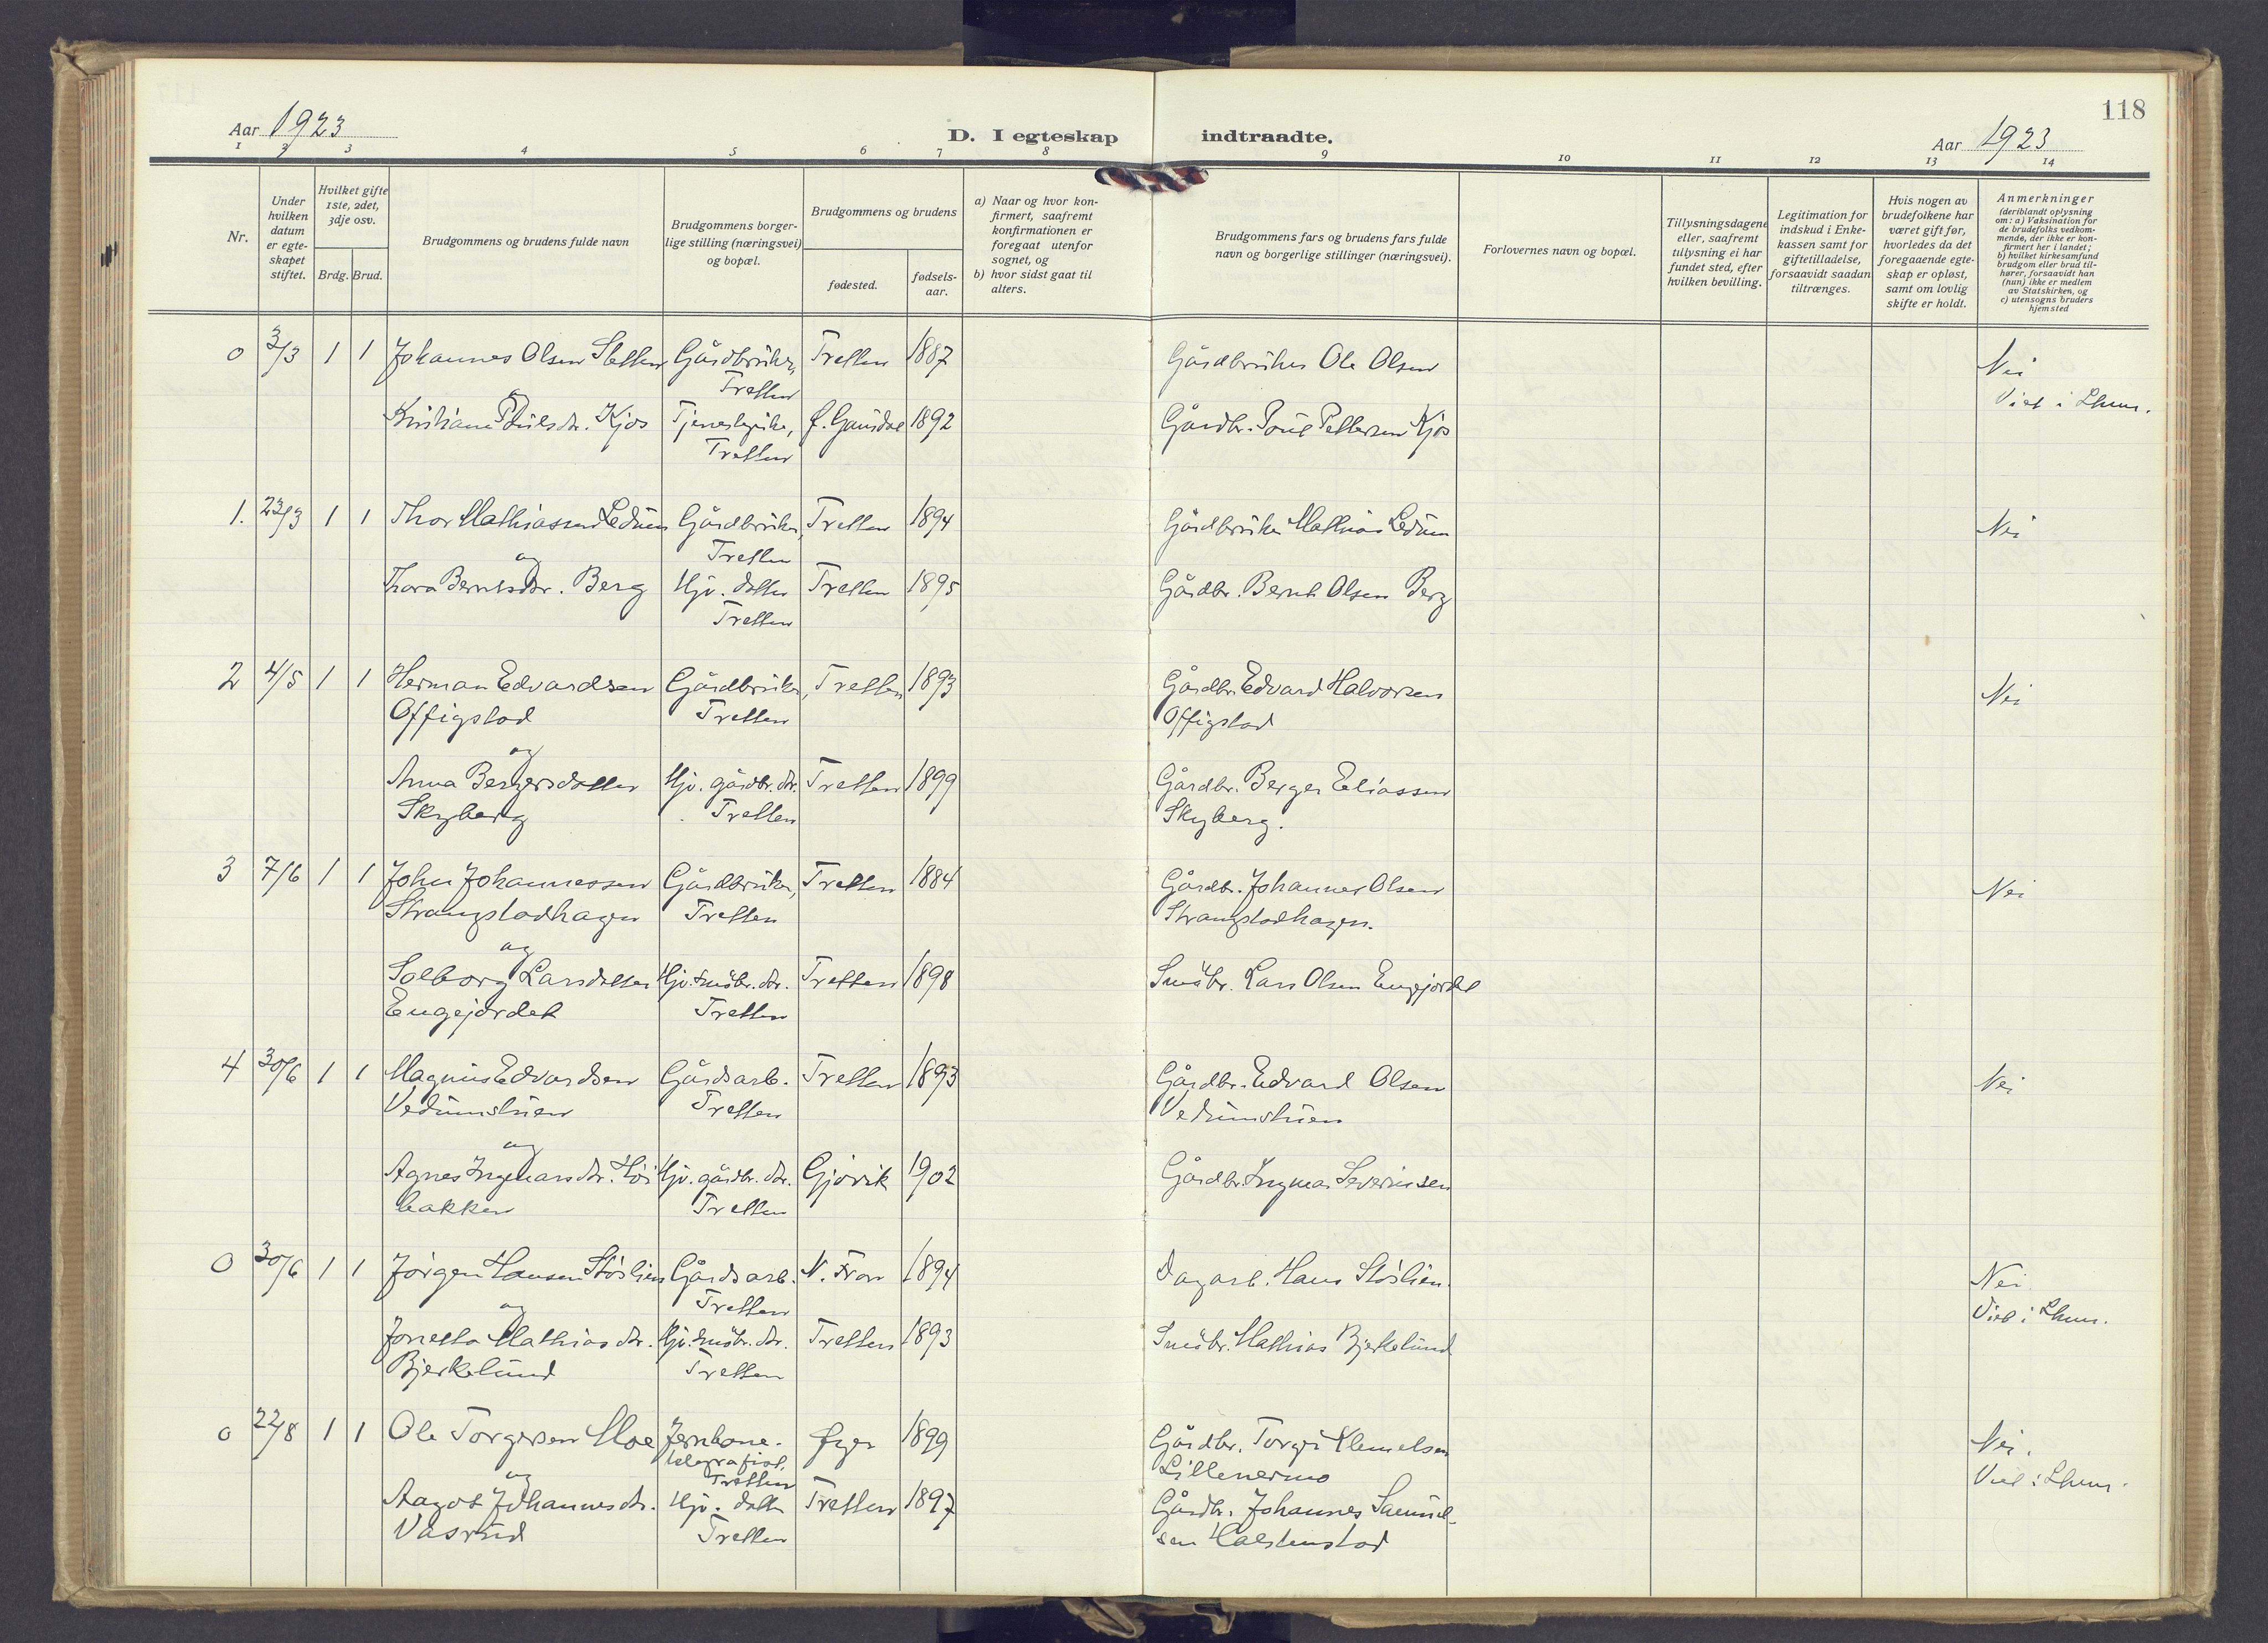 118
Aar 1923
D. I egteskap indtraadte.
Aar 1923
1 2 3 4 5 6 7 8 9 10 11 12 13 14
Nr.
Under hvilken datum er egteskapet stiftet.
Hvilket gifte 1ste, 2det, 3dje osv.
Brdg. Brud.
Brudgommens og brudens fulde navn
Brudgommens borgerlige stilling (næringsvei) og bopæl.
Brudgommens og brudens
fødested.
fødselsaar.
a) Naar og hvor konfirmert, saafremt konfirmationen er foregaat utenfor sognet, og
b) hvor sidst gaat til alters.
Brudgommens fars og brudens fars fulde navn og borgerlige stillinger (næringsvei).
Forlovernes navn og bopæl.
Tillysningsdagene eller, saafremt tillysning ei har fundet sted, efter hvilken bevilling.
Legitimation for indskud i Enkekassen samt for giftetilladelse, forsaavidt saadan tiltrænges.
Hvis nogen av brudefolkene har været gift før, hvorledes da det foregaaende egteskap er opløst, samt om lovlig skifte er holdt.
Anmerkninger
(deriblandt oplysning om: a) Vaksination for de brudefolks vedkommende, der ikke er konfirmert her i landet; b) hvilket kirkesamfund brudgom eller brud tilhører, forsaavidt han (hun) ikke er medlem av Statskirken, og c) utensogns bruders hjemsted
0 3/3 1 1 Johannes Olsen Sletten Gårdbruker, Tretten 1887 Gårdbruker Ole Olsen Nei
Tretten Viet i Lhmr.
og
Kristiane Poulsdtr. Kjos Tjenestepike, Ø. Gausdal 1892 Gårdbr. Poul Pettersen Kjos
Tretten
1. 23/3 1 1 Thor Mathiassen Ledum Gårdbruker, Tretten 1894 Gårdbruker Mathias Ledum Nei
og Tretten
Thora Berntsdtr. Berg Hjv. datter Tretten 1895 Gårdbr. Bernt Olsen Berg
Tretten
2 4/5 1 1 Herman Edvardsen Gårdbruker, Tretten 1893 Gårdbr. Edvard Halvorsen Nei
Offigstad Tretten Offigstad
og
Anna Bergersdatter Hjv. gårdbr. dtr. Tretten 1899 Gårdbr. Berger Eliassen
Skyberg Tretten Skyberg.
3 7/6 1 1 John Johannessen Gårdbruker, Tretten 1884 Gårdbr. Johannes Olsen Nei
Strangstadhagen Tretten Strangstadhagen.
og
Solborg Larsdatter Hjv. småbr. dtr. Tretten 1898 Småbr. Lars Olsen Engejordet
Engejordet Tretten
4 30/6 1 1 Magnus Edvardsen Gårdsarb. Tretten 1893 Gårdbr. Edvard Olsen Nei
Vedumstuen Tretten Vedumstuen
og
Agnes Ingmarsdtr. Høi Hjv. gårdbr. dtr. Gjøvik 1902 Gårdbr. Ingmar Severinsen
bakken Tretten
0 30/6 1 1 Jørgen Hansen Støslien Gårdsarb. N. Fron 1894 Dagarb. Hans Støslien. Nei
og Tretten Viet i Lhmr.
Jonetta Mathiasdtr. Hjv. småbr. dtr. Tretten 1893 Småbr. Mathias Bjerkelund
Bjerkelund Tretten
0 22/8 1 1 Ole Torgersen Moe Jernbane- Øyer 1899 Gårdbr. Torger Klemetsen Nei.
telegrafist, Lillenermo Viet i Lhmr.
og Tretten
Aagot Johannesdtr. Hjv. datter Tretten 1897 Gårdbr. Johannes Samuel-
Vasrud Tretten sen Halstenstad